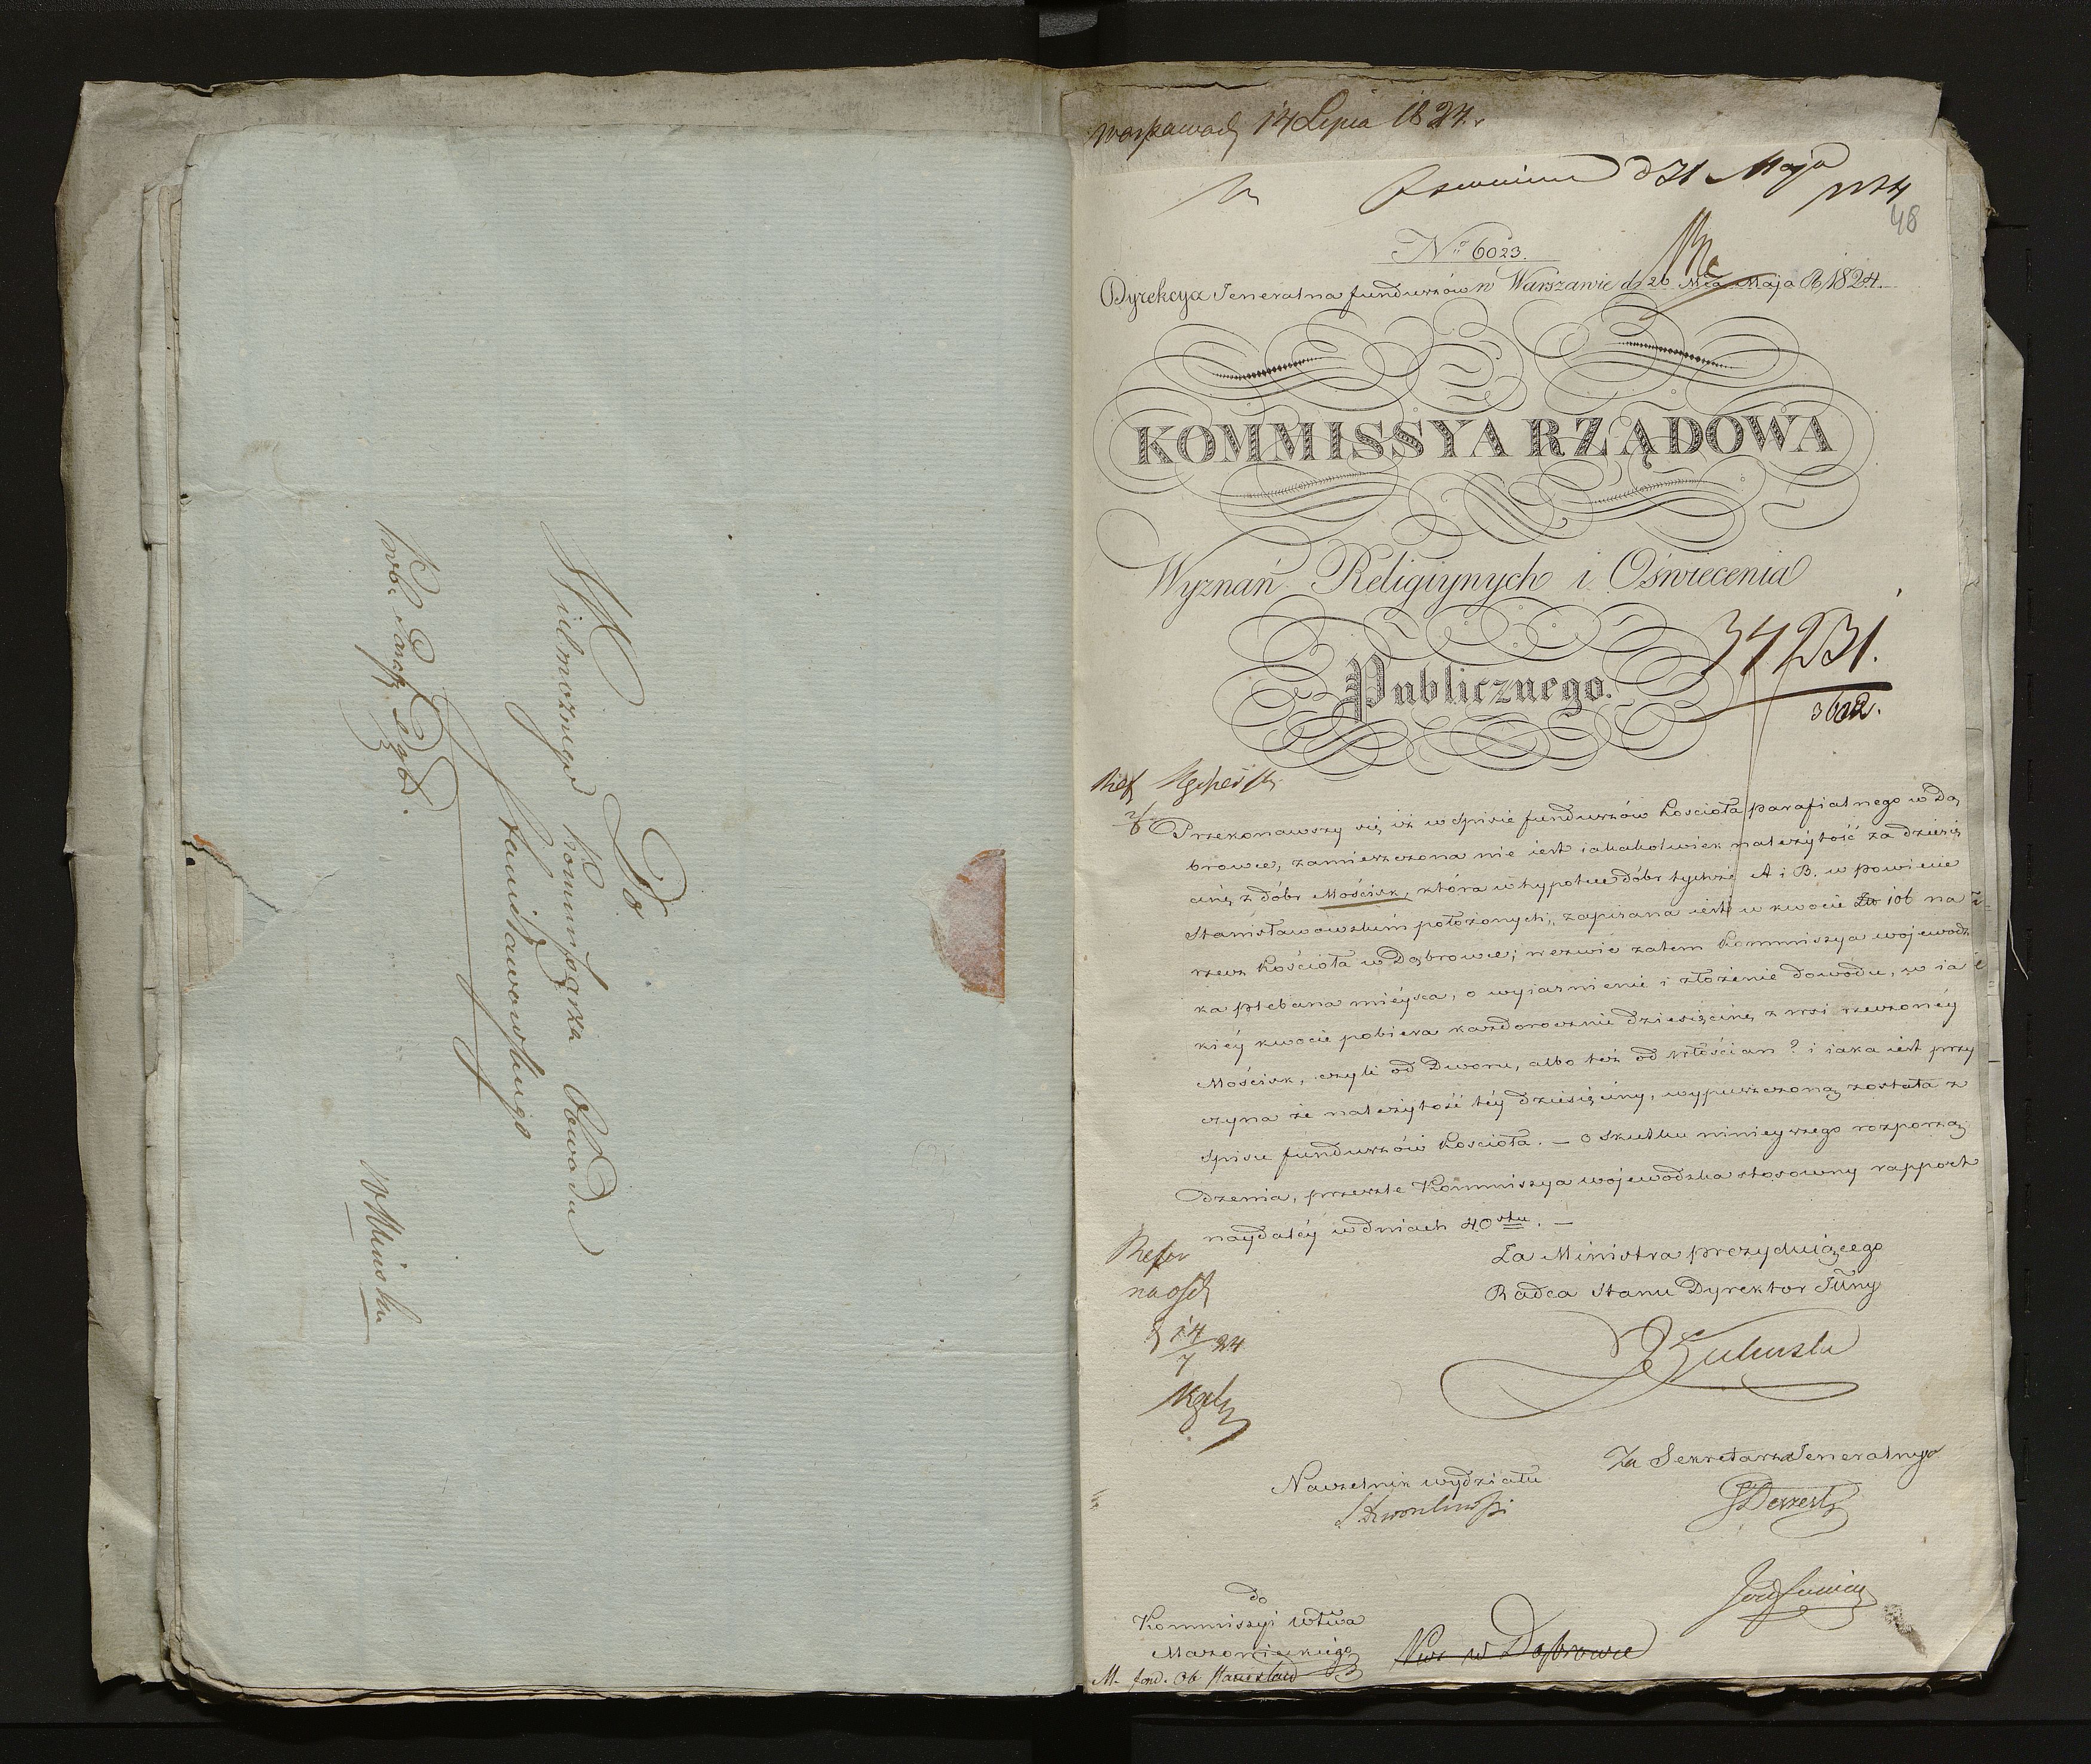 Do
Wielmożnego Kommissarza Obwodu
Stanisławowskiego
w Mińsku
14 Lipca 1824.
d 31 Maja
48
No 6023.
Dyrekcya Jeneralna funduszów w Warszawie d. 26 Mca Maja R. 1824.
KOMMISSYA RZĄDOWA
Wyznań Religiynych i Oświecenia
Publicznego.
Przekonawszy się iż w spisie funduszów kościoła parafialnego w Dą
browce, zamieszczona nie iest iakakolwiek należytość za dziesię
cinę z dóbr Mościsk, która w hypotece dóbr tychże A i B. w powiecie
Stanisławowskim położonych, zapisana iest w kwocie 106 na
rzecz kościoła w Dąbrowce; wezwie zatem Kommissya wojewodz
ka plebana mieysca, o wyiaśnienie i złożenie dowodu, w ia
kiéy kwocie pobiera każdorocznie dziesięcinę z wsi rzeczonéy
Mościsk, czyli od Dworu, albo też od włościan? i iaka iest przy
czyna że należytość téy dziesięciny, wypuszczoną została z
spisu funduszów kościoła. — O skutku ninieyszego rozporzą
dzenia, prześle Kommissya wojewódzka stosowny rapport
naydaléy w dniach 40stu. —
Za Ministra prezyduiącego
Radca Stanu Dyrektor Jlny
14/7 24
Za Sekretarza Jeneralnego
Naczelnik wydziału
do
Kommissyi Wtwa
Mazowieckiego
w Dąbrowce